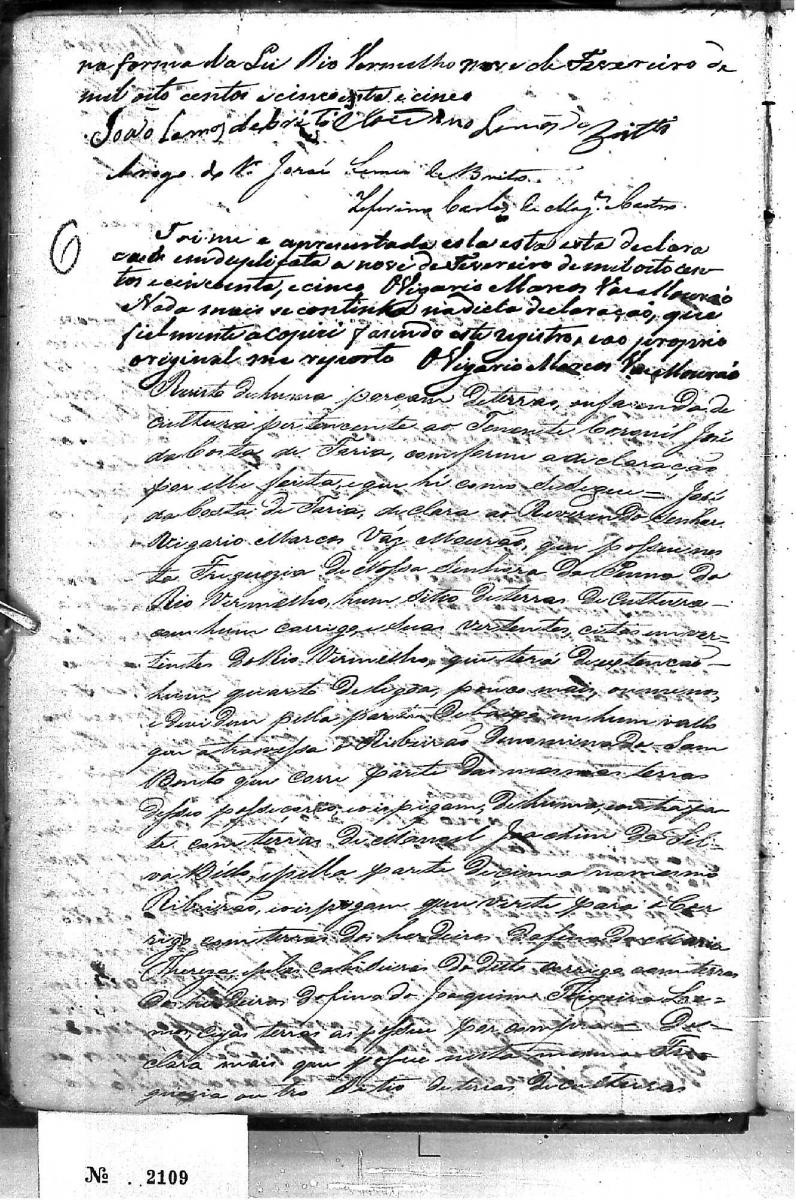 na forma da Lei Rio Vermelho nove de Fevereiro de
mil oito centos e cincoenta e cinco
João Lemos de Brito Lemos de Britto
Arogo de José Lemos de Brito
Zeferino Carlos de Mag. Castro
6
Foi me a apresentada esta esta declara
cão em duplicata a nove de Fevereiro de mil oito cen
tos e cincoenta, e cinco O Vigario Marcos Vaz Mourão
Nada mais se continha na dicta declaração, que
fielmente a copiei fasendo este registro, e ao proprio
original me reporto O Vigario Marcos Vaz Mourão
de huma porçam de terras, de
cultura pertencente ao Tenente Coronel José
da Costa de Faria, comforme a declaração
por elle feita, e que hé como se segue = José
da Costa de Faria, declara ao Reverendo Senhor
Vigario Marcos Vaz Mourão, que possue nes
ta Freguezia de Nossa Senhora da Penna do
Rio Vermelho, hum Sitio de terras de Cultura
em hum corrigo, e suas vertentes, citas em ver-
tentes do Rio Vermelho, que terá de extenção
hum quarto de legoa, pouco mais, ou menos,
e devidem pella parte em hum vallo
que atravessa o Ribeirão denominado Sam
Bento que corre parte das mesmas terras
e espigam, de huma, e outra par
te com terras de Manoel Joaquim da Sil-
va e pella parte de cima no mesmo
Ribeirão, e espigam que verte para o Cor
rigo com terras dos herdeiros da finada Maria
Thereza, pelas cabiceiras do ditto corrigo com terras
dos herdeiros do finado Joaquim Teixeira Le
mos, cujas terras as possue por compra = De
clara mais que possue nesta mesma Fre
guezia outro Sitio de terras de culturas
Nº 2109